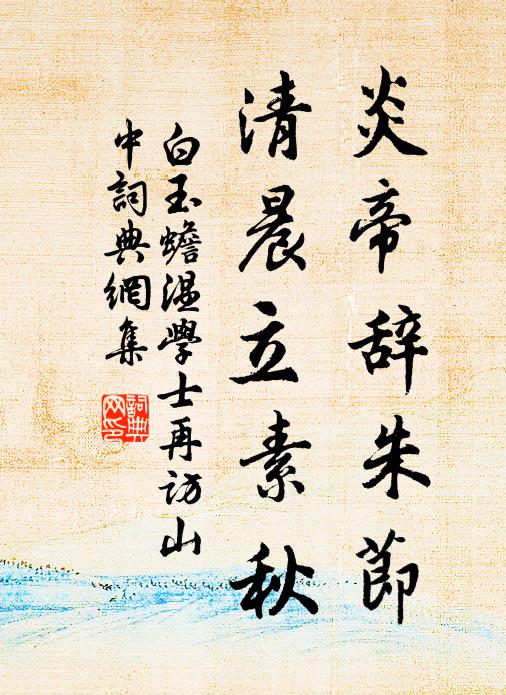 炎帝辞朱節
清晨立素秋
白玉蟾溫學士再访山
中詞典網集
詞典网印